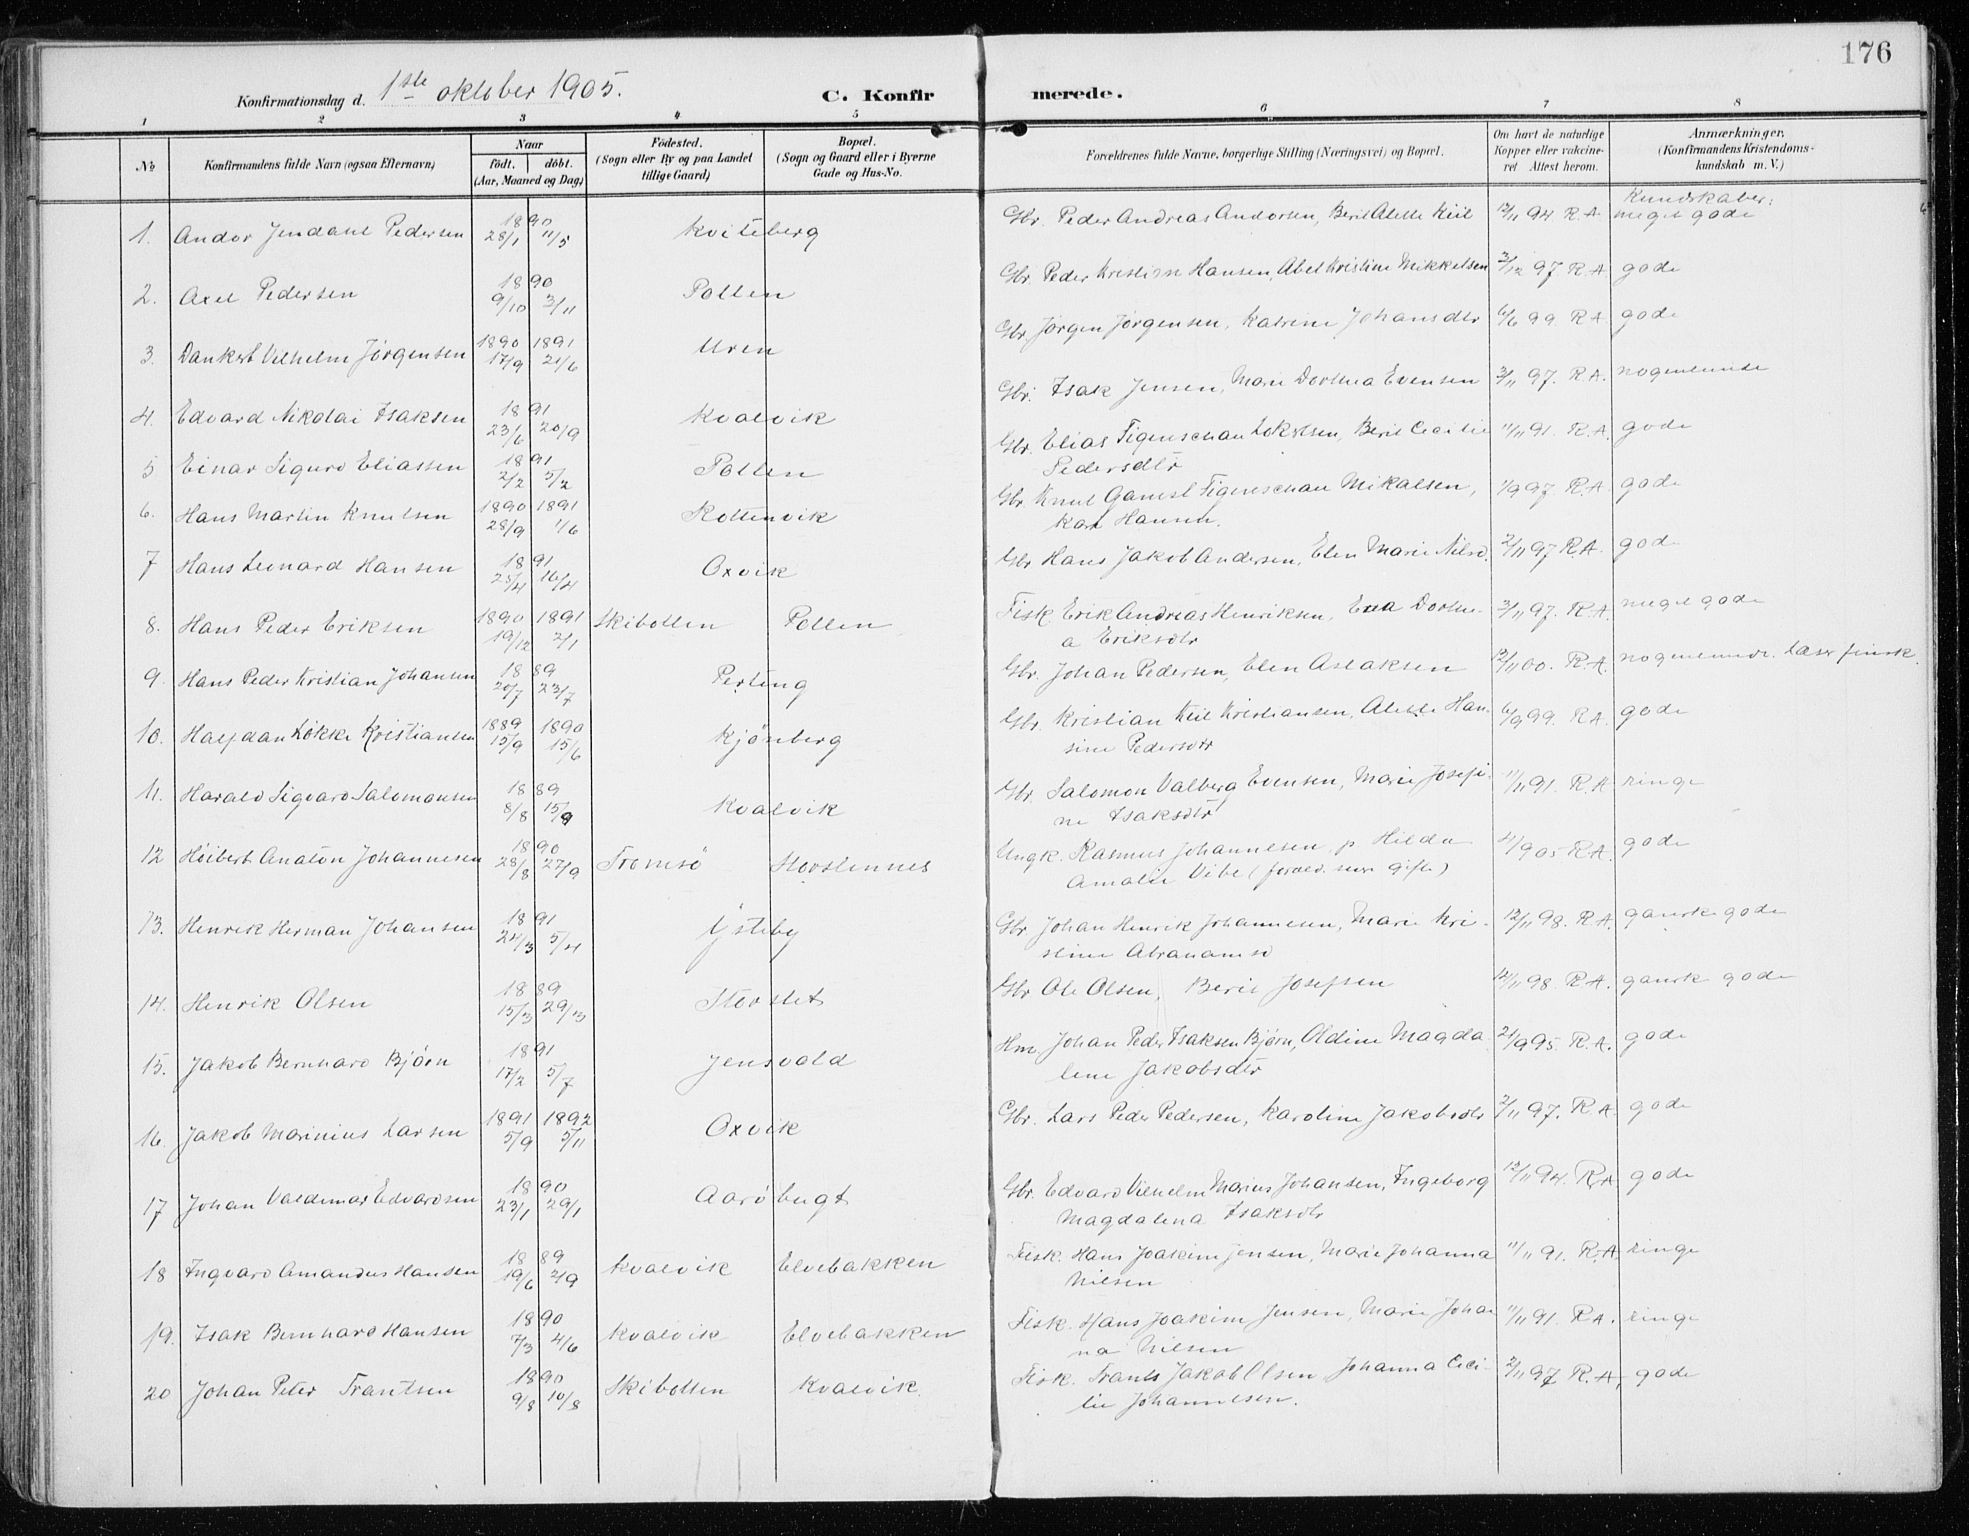 176
Konfirmationsdag d. 1ste oktober 1905. C. Konfir merede.
1 2 3 4 5 6 7 8
No. Konfirmandens fulde Navn (ogsaa Efternavn) Naar født. døbt. (Aar, Maaned og Dag) Fødested. (Sogn eller By og paa Landet tillige Gaard) Bopæl. (Sogn og Gaard eller i Byerne Gade og Hus-No. Forældrenes fulde Navne, borgerlige Stilling (Næringsvei) og Bopæl. Om havt de naturlige Kopper eller vakcineret Attest herom. Anmærkninger. (Konfirmandens Kristendomskundskab m. V.)
Kundskaber:
1. Andor Jendahl Pedersen 1890 28/1 11/5 Kviteberg Gbr. Peder Andreas Andorsen, Beril Alette Kiil 12/11 94 R.A. meget gode
2. Axel Pedersen 1890 9/10 3/11 Pollen Gbr. Peder Kristian Hansen, Abel Kristine Mikkelsen 3/12 97. R.A. gode
3. Dankert Vilhelm Jørgensen 1890 1891 17/9 21/6 Uren Gbr. Jørgen Jørgensen, Katrine Johansdtr 6/6 99. R.A. gode
4. Edvard Nikolai Isaksen 1891 23/6 20/9 Kvalvik Gbr. Isak Jensen, Marie Dorthea Evensen 3/11 97. R.A. nogenlunde
5 Einar Sigurd Eliassen 1891 2/2 5/2 Pollen Gbr. Elias Figenschau Lokertsen, Beril Cecilie
Pedersdtr 11/11 91. R.A. gode
6. Hans Martin Knutsen 1890 1891 28/9 1/6 Rottenvik Gbr. Knut Gamst Figenschau Mikalsen,
Hansen. 1/9 97. R.A. gode
7 Hans Leonard Hansen 1891 25/4 16/4 Oxvik Gbr. Hans Jakob Andersen, Elen Marie Nilsd. 2/11 97 R.A. gode
8. Hans Peder Eriksen 1890 1891 19/12 2/1 Skibotten Pollen Fisk. Erik Andreas Henriksen, Eva Dorthe-
a Eriksdtr 3/11 97. R.A. meget gode
9. Hans Peder Kristian Johansen 1889 20/7 23/7 Perteng Gbr. Johan Pedersen, Elen Aslaksen 12/11 00. R.A. nogenlunde. Læser finsk.
10. Halfdan Løkke Kristiansen 1889 1890 15/9 15/6 Kjønberg Gbr. Kristian Kiil Kristiansen, Alette Han
sine Pedersdtr 6/9 99. R.A. gode
11. Harald Sigvard Salomonsen 1889 8/8 15/9 Kvalvik Gbr. Salomon Valberg Evensen, Marie Josefi-
ne Isaksdtr 11/11 91. R.A. ringe
12 Høibert Anaton Johannesen 1890 28/8 27/9 Tromsø Storstennes Ungk. Rasmus Johannesen, p. Hilda
Amalie Vibe (foræld. senere gifte) 4/9 05 R.A. gode
13. Henrik Herman Johansen 1891 24/3 5/4 Ysteby Gbr Johan Henrik Johannesen, Marie Kri-
stine Abrahamsd 12/11 98. R.A. ganske gode
14. Henrik Olsen 1889 15/3 29/3 Storslet Gbr Ole Olsen, Beril Josefsen 12/11 98. R.A. ganske gode
15. Jakob Bernhard Bjørn 1891 17/2 5/7 Jensvold Hm. Johan Peder Isaksen Bjørn, Oldine Magda
lene Jakobsdtr 21/9 95. R.A. gode
16. Jakob Marinius Larsen 1891 1892 5/9 5/11 Oxvik Gbr. Lars Peder Pedersen, Karoline Jakobsdtr 2/11 97. R.A. gode
17 Johan Valdemar Edvardsen 1890 23/1 29/1 Aarøbugt Gbr. Edvard Vilhelm Marius Johansen, Ingeborg
Magdalena Isaksdtr 12/11 94. R.A. gode
18 Ingvard Amandus Hansen 1889 19/6 2/9 Kvalvik Elvebakken Fisk. Hans Joakim Jensen, Marie Johanna
Nilsen 11/11 91. R.A. ringe
19. Isak Bernhard Hansen 1890 7/3 4/6 Kvalvik Elvebakken Fisk. Hans Joakim Jensen, Marie Johan
na Nilsen 11/11 91. R.A. ringe
20 Johan Peter Frantsen 1890 9/8 10/8 Skibotten Kvalvik. Fisk. Frants Jakob Olsen, Johanna Ceci-
lie Johannesen. 2/11 97 R.A. gode